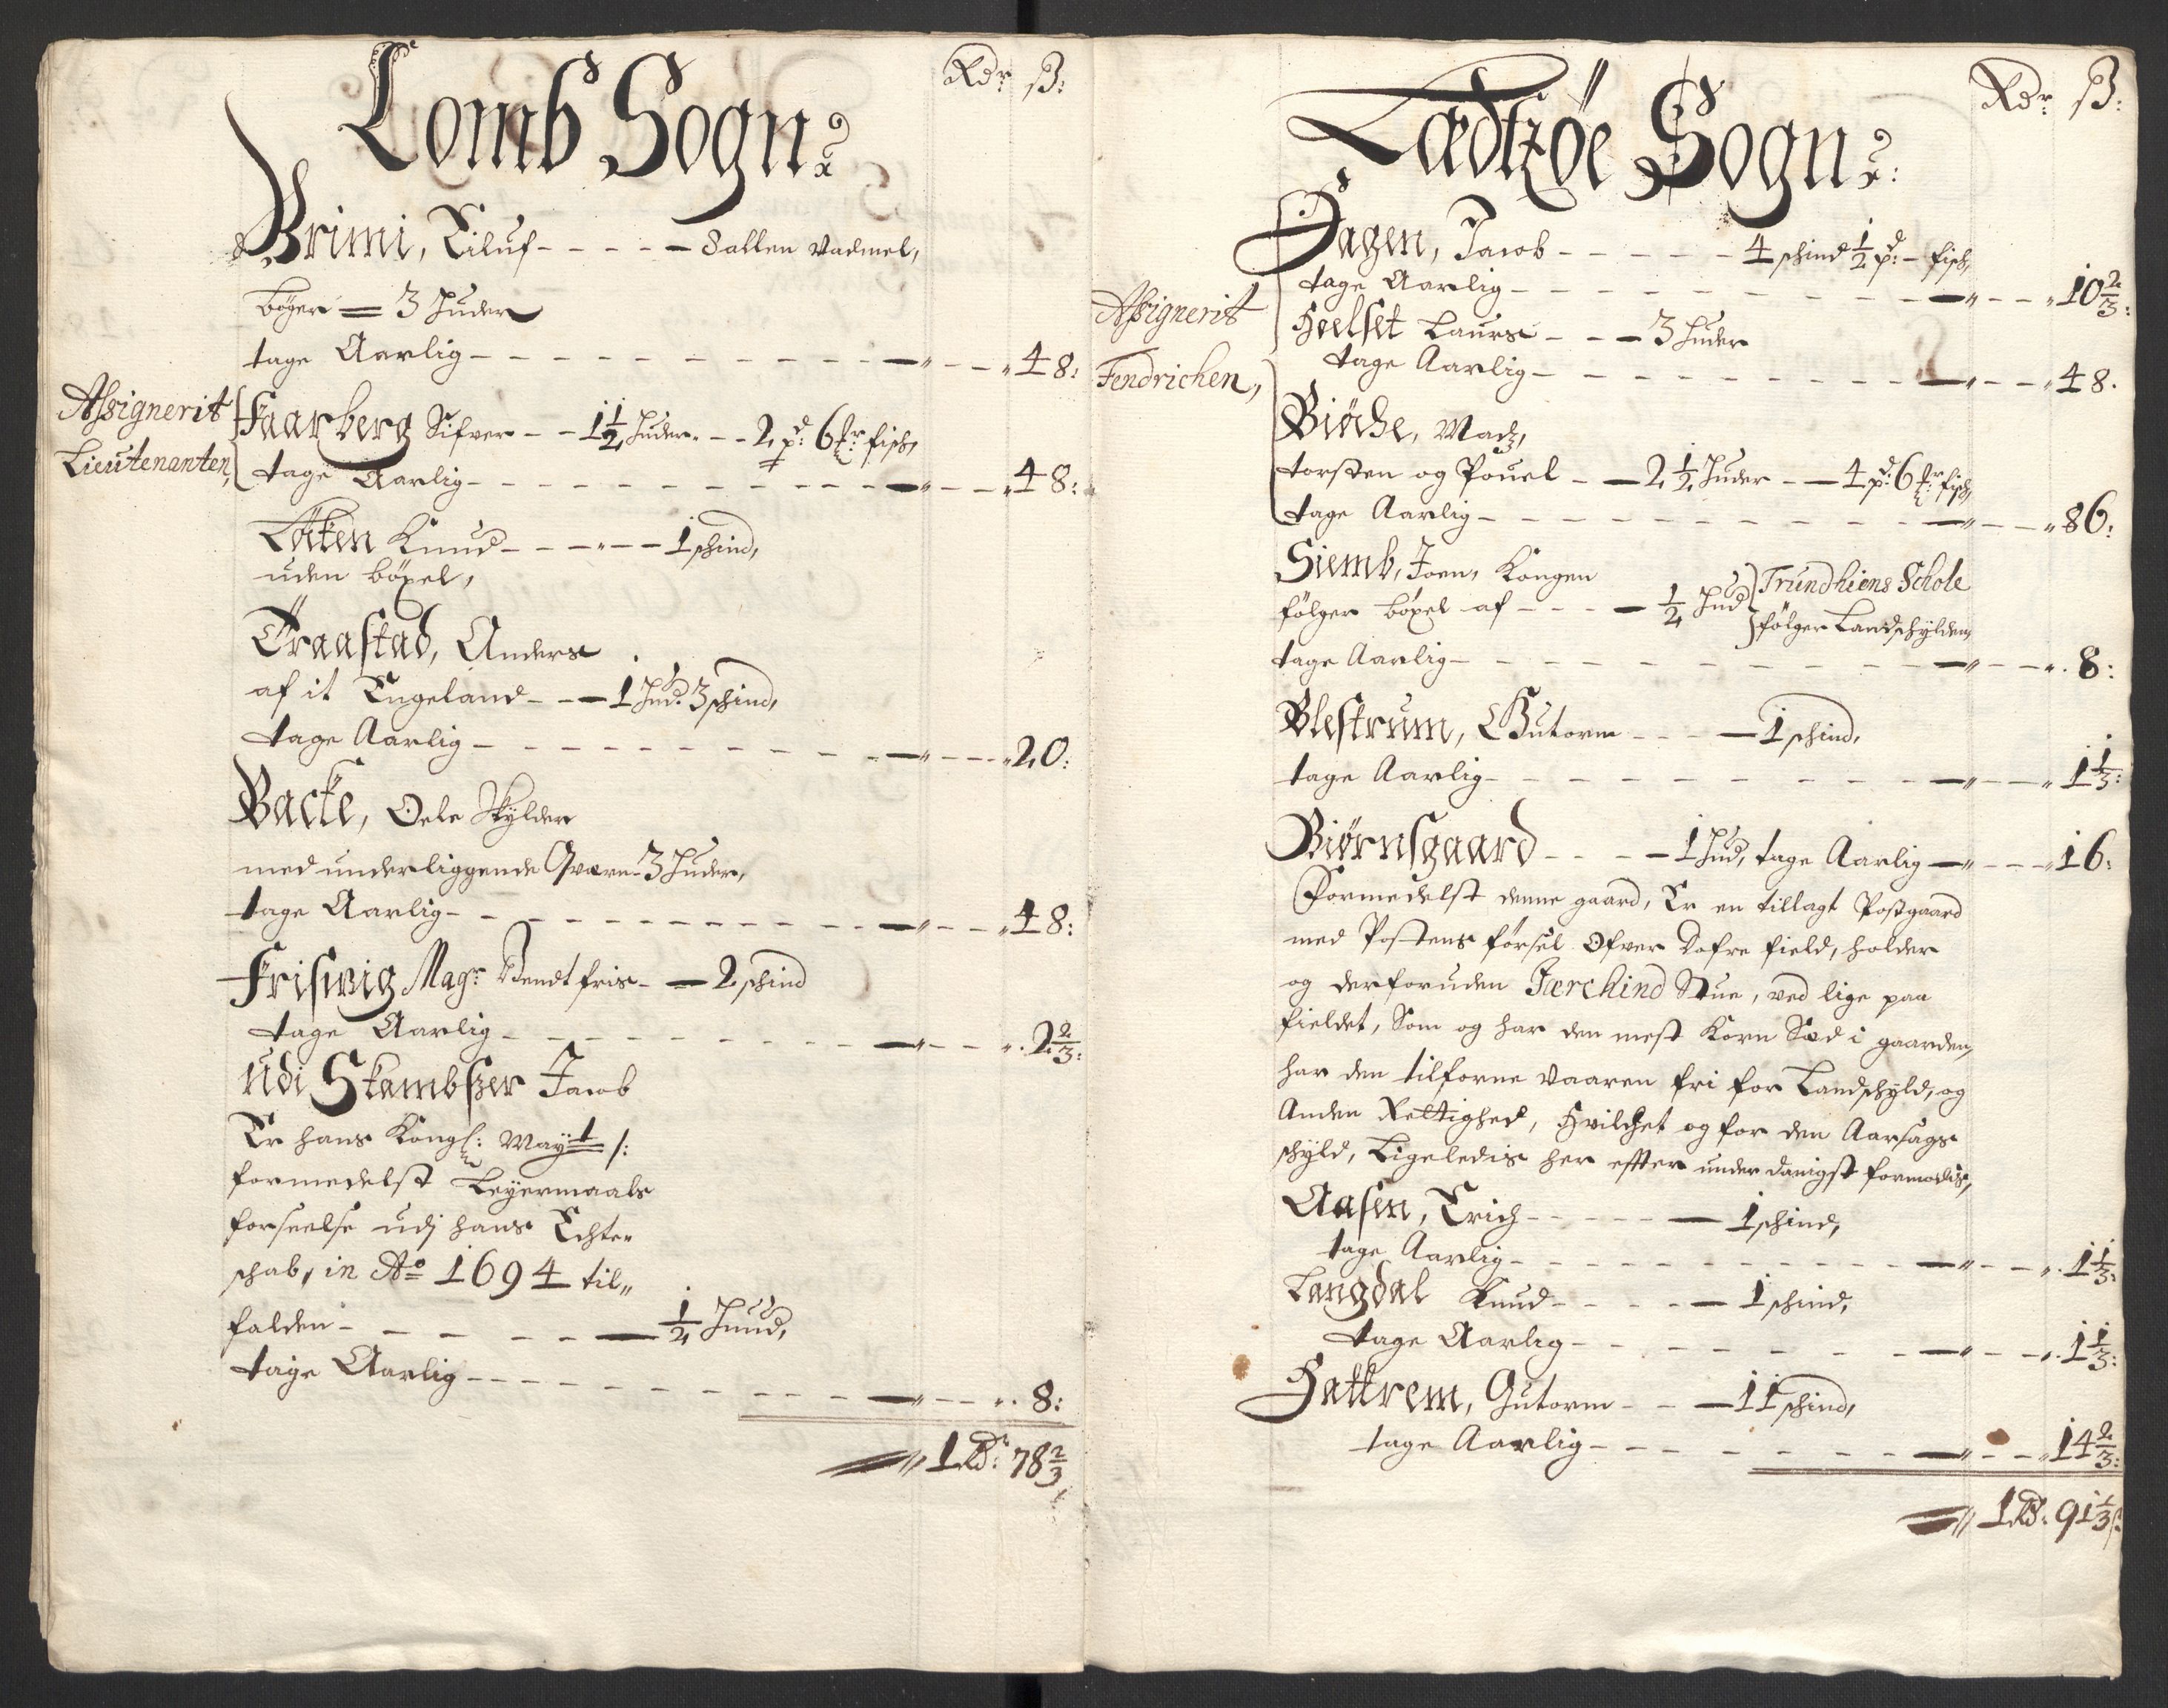 Rdr ß:
Lomb Sogn:
Brimi, Eiluf - - - - - 8 allen Vadmel,
bøger = 3 Huder
tage Aarlig - - - - - - - - - - " - - - " 48:
Assignerit
Lieutenanten,
Gaarberg Sifver - - 1½ Huder. - - 2 pd: 6 fisch,
tage Aarlig - - - - - - - - - - " - - - " 48:
Knud - - - - - - 1 schind,
uden böxel,
Traastad, Anders
af it Engeland - - - 1 Hud: 3 schind,
tage Aarlig - - - - - - - - - - " - - - " 20:
Backe, Oele Skylder
med underliggende Qværn 3 Huder,
tage Aarlig - - - - - - - - - - " - - - " 48:
Friswig Magr Bendt friis - - 2 schind
tage Aarlig - - - - - - - - - - " - - - " 2⅔:
Udi Skambszer Jacob
Er hans Kongl: Mayt /:
formedelst Leyermaals
forseelse udj hans Echte-
schab, in Ao 1694 til„
falden - - - - - - ½ Huud,
tage Aarlig - - - - - - - - - - " - - - " 8:
1 Rd: 78⅔
Rdr ß:
Lædtzøe Sogn:
Hagen, Jacob - - - - - - 4 schind ½ pd: - fisch,
tage Aarlig - - - - - - - - - - " - - - " 10⅔:
Assignerit
Fendrichen,
Heelset Laurs - - - 3 Huder
tage Aarlig - - - - - - - - - - " - - - " 48.
Biøche, Madz,
torsten og Pouel - - 2½ Huder - - 4 pd: 6 fisch,
tage Aarlig - - - - - - - - - - " - - - " 86:
Siemb, Joen, Kongen
følger böxel af - - - - ½ Hud
Trundhiems Schole
følger Landschylden,
tage Aarlig - - - - - - - - - - " - - - " 8:
Blestrum, Gutorm - - - - 1 schind,
tage Aarlig - - - - - - - - - - " - - - " 1⅓:
Biørnsgaard - - - - 1 Hud, tage Aarlig - " - - - " 16:
Formedelst denne gaard, Er en tillagt Postgaard
med Postens førsel Ofver Dofre field, holder
og derforuden Jærchind Stue, ved lige paa
fieldet, Som og har den mest Korn Sæd i gaarden,
har den tilforne Vaaren fri for Landschyld, og
Anden Rettighed, Hvilchet og for den Aarsags
schyld, Ligeledis her effter underdanigst formodis,
Aasen, Erich - - - - - - 1 schind,
tage Aarlig - - - - - - - - - - " - - - " 1⅓:
Langdal Knud - - - - - 1 schind,
tage Aarlig - - - - - - - - - - " - - - " 1⅓:
Hattrem, Gutorm - - - 11 schind,
tage Aarlig - - - - - - - - - - " - - - " 14⅔:
1 Rd: 91⅓ ß: